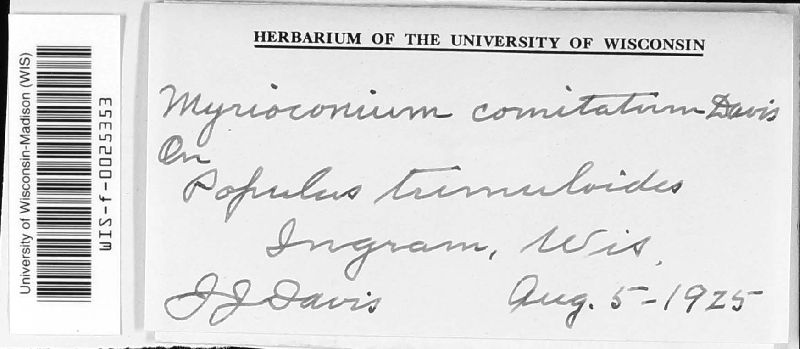 HERBARIUM OF THE UNIVERSITY OF WISCONSIN
Myrioconium comitatum Davis
On
Populus tremuloides
Ingram, Wis.
J J Davis Aug. 5-1925
University of Wisconsin-Madison (WIS)
WIS-f-0025353